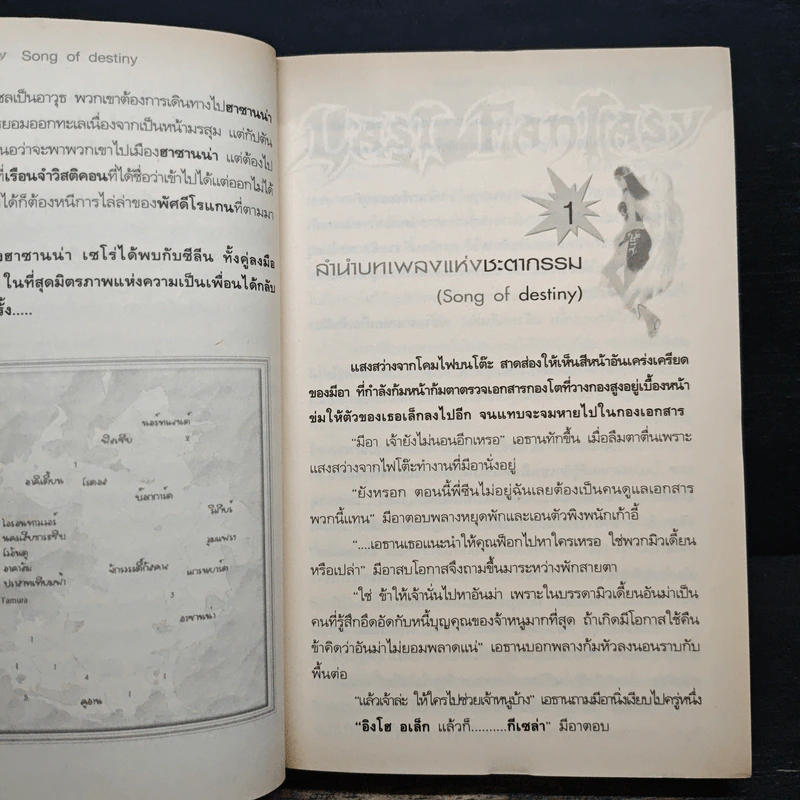 Song of destiny
ซลเป็นอาวุธ พวกเขาต้องการเดินทางไปฮาซานน่า
รยอมออกทะเลเนื่องจากเป็นหน้ามรสุม แต่กัปตัน
นอว่าจะพาพวกเขาไปเมืองฮาซานน่า แต่ต้องไป
ที่เรือนจำวิสติคอนที่ได้ชื่อว่าเข้าไปได้แต่ออกไม่ได้
ได้ก็ต้องหนีการไล่ล่าของพัศดีโรแกนที่ตามมา
งฮาซานน่า เซโร่ได้พบกับซีลีน ทั้งคู่ลงมือ
ในที่สุดมิตรภาพแห่งความเป็นเพื่อนได้กลับ
รั้ง.....
Tamura
3
1
1
1
4
1
3
Vast Fantasy
1
ลำนำบทเพลงแห่งชะตากรรม
(Song of destiny)
แสงสว่างจากโคมไฟบนโต๊ะ สาดส่องให้เห็นสีหน้าอันเคร่งเครียด
ของมีอา ที่กำลังก้มหน้าก้มตาตรวจเอกสารกองโตที่วางกองสูงอยู่เบื้องหน้า
ข่มให้ตัวของเธอเล็กลงไปอีก จนแทบจะจมหายไปในกองเอกสาร
"มีอา เจ้ายังไม่นอนอีกเหรอ" เอธานทักขึ้น เมื่อลืมตาตื่นเพราะ
แสงสว่างจากไฟโต๊ะทำงานที่มีอานั่งอยู่
"ยังหรอก ตอนนี้พี่ซีนไม่อยู่ฉันเลยต้องเป็นคนดูแลเอกสาร
พวกนี้แทน" มีอาตอบพลางหยุดพักและเอนตัวพิงพนักเก้าอี้
"....เอธานเธอแนะนำให้คุณฟ็อกไปหาใครเหรอ ใช่พวกมิวเดี้ยน
หรือเปล่า" มีอาสบโอกาสจึงถามขึ้นมาระหว่างพักสายตา
"ใช่ ข้าให้เจ้านั่นไปหาอันม่า เพราะในบรรดามิวเดี้ยนอันม่าเป็น
คนที่รู้สึกอึดอัดกับหนี้บุญคุณของเจ้าหนูมากที่สุด ถ้าเกิดมีโอกาสใช้คืน
ข้าคิดว่าอันม่าไม่ยอมพลาดแน่" เอธานบอกพลางก้มหัวลงนอนราบกับ
พื้นต่อ
"แล้วเจ้าล่ะ ให้ใครไปช่วยเจ้าหนูบ้าง" เอธานถามมีอานิ่งเงียบไปครู่หนึ่ง
"อิงโฮ อเล็ก แล้วก็..........กีเซล่า" มีอาตอบ